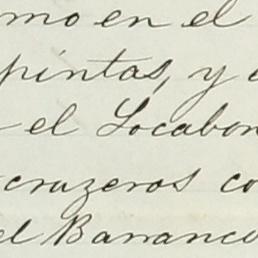 mo en el
pintas, y
el Locabon
cruzeros co
el Barranco